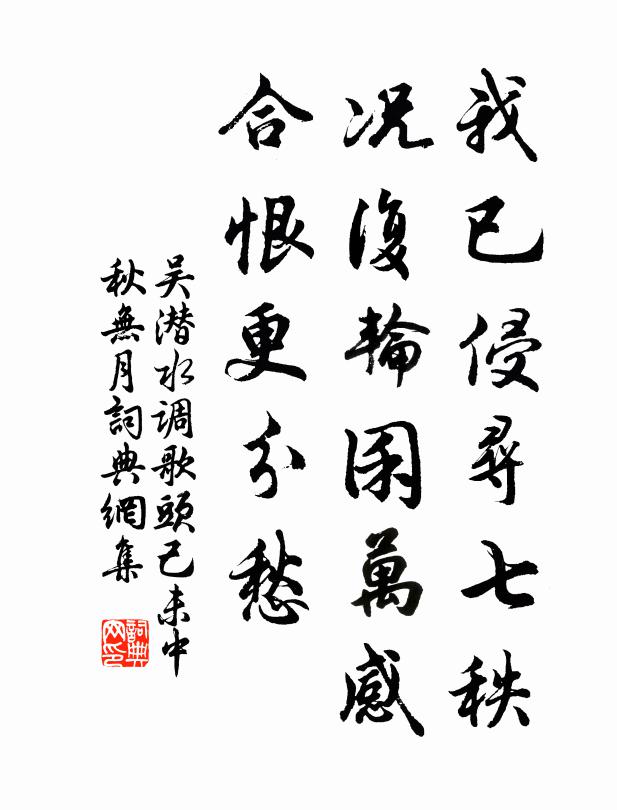 我已侵尋七秩
况復輪囷萬感
合恨更分愁
吴潜水调歌頭己未中
秋無月詞典網集
詞典
网印